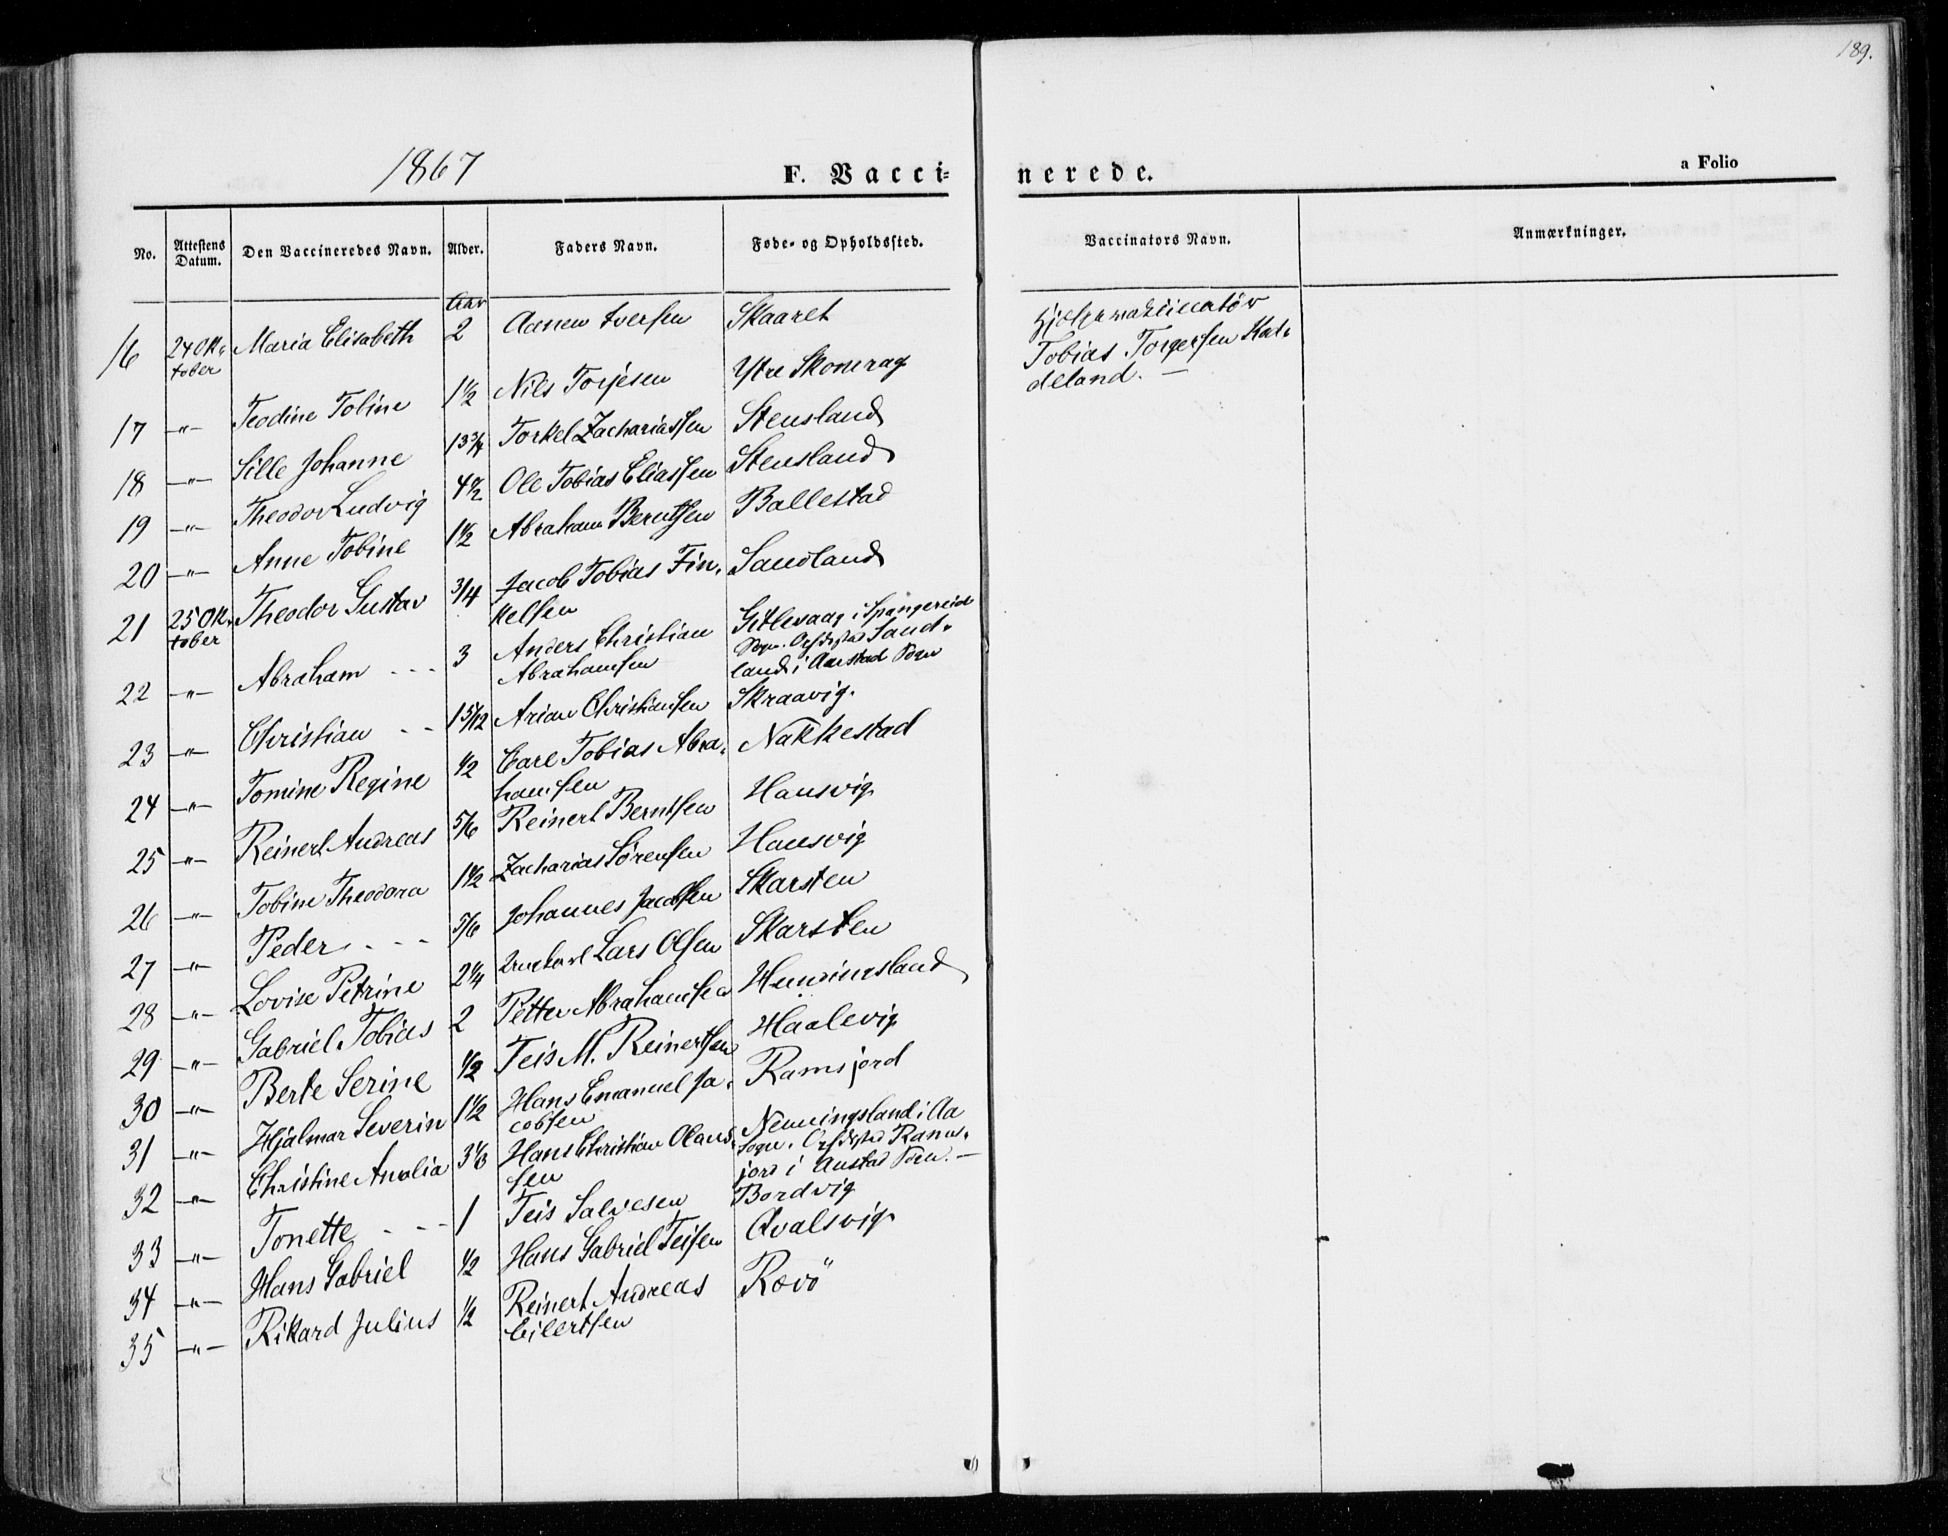 189.
1867
F. Vaccinerede.
a Folio
No. Attestens Datum. Den Vaccineredes Navn. Alder. Faders Navn. Føde- og Opholdssted. Vaccinators Navn. Anmærkninger.
Aar
16 24 Ok- Maria Elisabeth 2 Aanen Iversen Skaaret Hjelpevakcinatør
tober Tobias Torgersen Kal-
deland. —
17 —"— Teodine Tobine 1½ Nils Torjesen Ytre Skomrag
18 —"— Sille Johanne 13¾ Torkel Zachariassen Stensland
19 —"— Theodor Ludvig 4½ Ole Tobias Eliassen Stensland
20 —"— Anne Tobine 1½ Abraham Berntsen Ballestad
21 25 Ok- Theodor Gustav 3/4 Jacob Tobias Fin- Sandland
tober kelsen
22 —"— Abraham - - - 3 Anders Christian Gitlevaag i Spangereid
Abrahamsen Sogn. Opholdssted Sand-
land i Austad Sogn
23 —"— Christian - - 1 5/12 Arian Christiansen Skraavig.
24 —"— Tomine Regine ½ Carl Tobias Abra- Nakkestad
hamsen
25 —"— Reinert Andreas 5/6 Reinert Berntsen Hausvig
26 —"— Tobine Theodora 1½ Zacharias Sørensen Hausvig
27 —"— Peder - - - 5/6 Johannes Jacobsen Skarsten
28 —"— Lovise Petrine 2¼ Lars Olsen Skarsten
29 —"— Gabriel Tobias 2 Petter Abrahamsen
30 —"— Berte Serine ½ Teis M. Reinertsen Haalevig
31 —"— Hjalmar Severin 1½ Hans Emanuel Ja- Ramsjord
cobsen
32 —"— Christine Analia 3⅓ Hans Christian Olaus- Nenningsland i Aa
sen Sogn. Rams-
jord i Austad Sogn. —
33 —"— Tonette - - - 1 Teis Salvesen Bordvig
34 —"— Hans Gabriel ½ Hans Gabriel Teisen Qvalsvig
35 —"— Rikard Julius ½ Reinert Andreas Rævö
Eilertsen